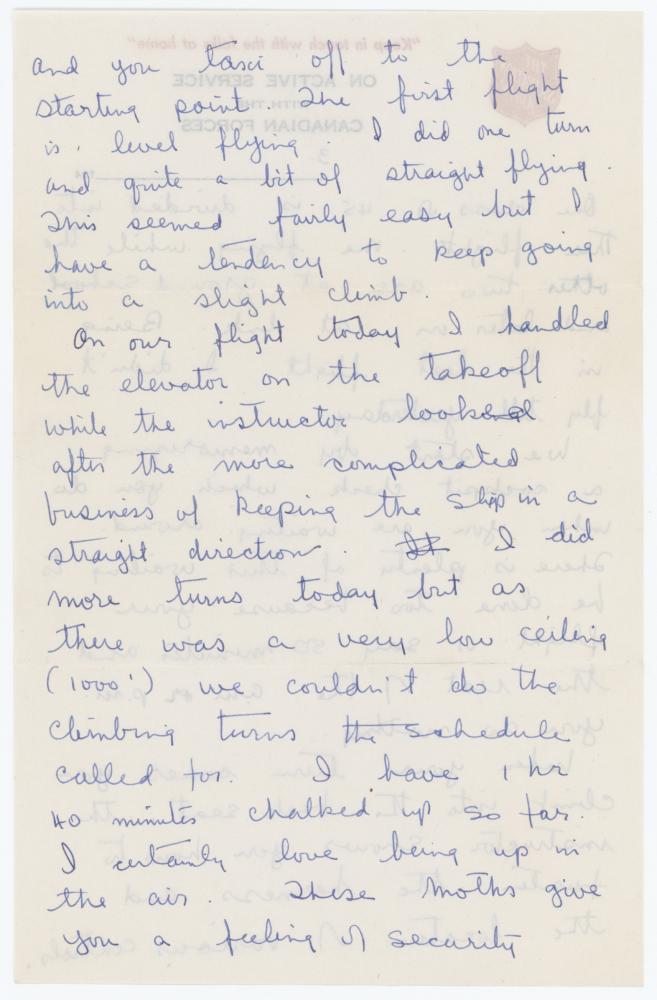 and you taxi off to the
starting point. The first flight
is level flying. I did one turn
and quite a bit of straight flying.
This seemed fairly easy but I
have a tendency to keep going
into a slight climb.
On our flight today I handled
the elevator on the takeoff
while the instructor looked
after the more complicated
business of keeping the ship in a
straight direction. It I did
more turns today but as
there was a very low ceiling
(1000') we couldn't do the
climbing turns the schedule
called for. I have 1 hr
40 minutes chalked up so far.
I certainly love being up in
the air. These Moths give
you a feeling of security